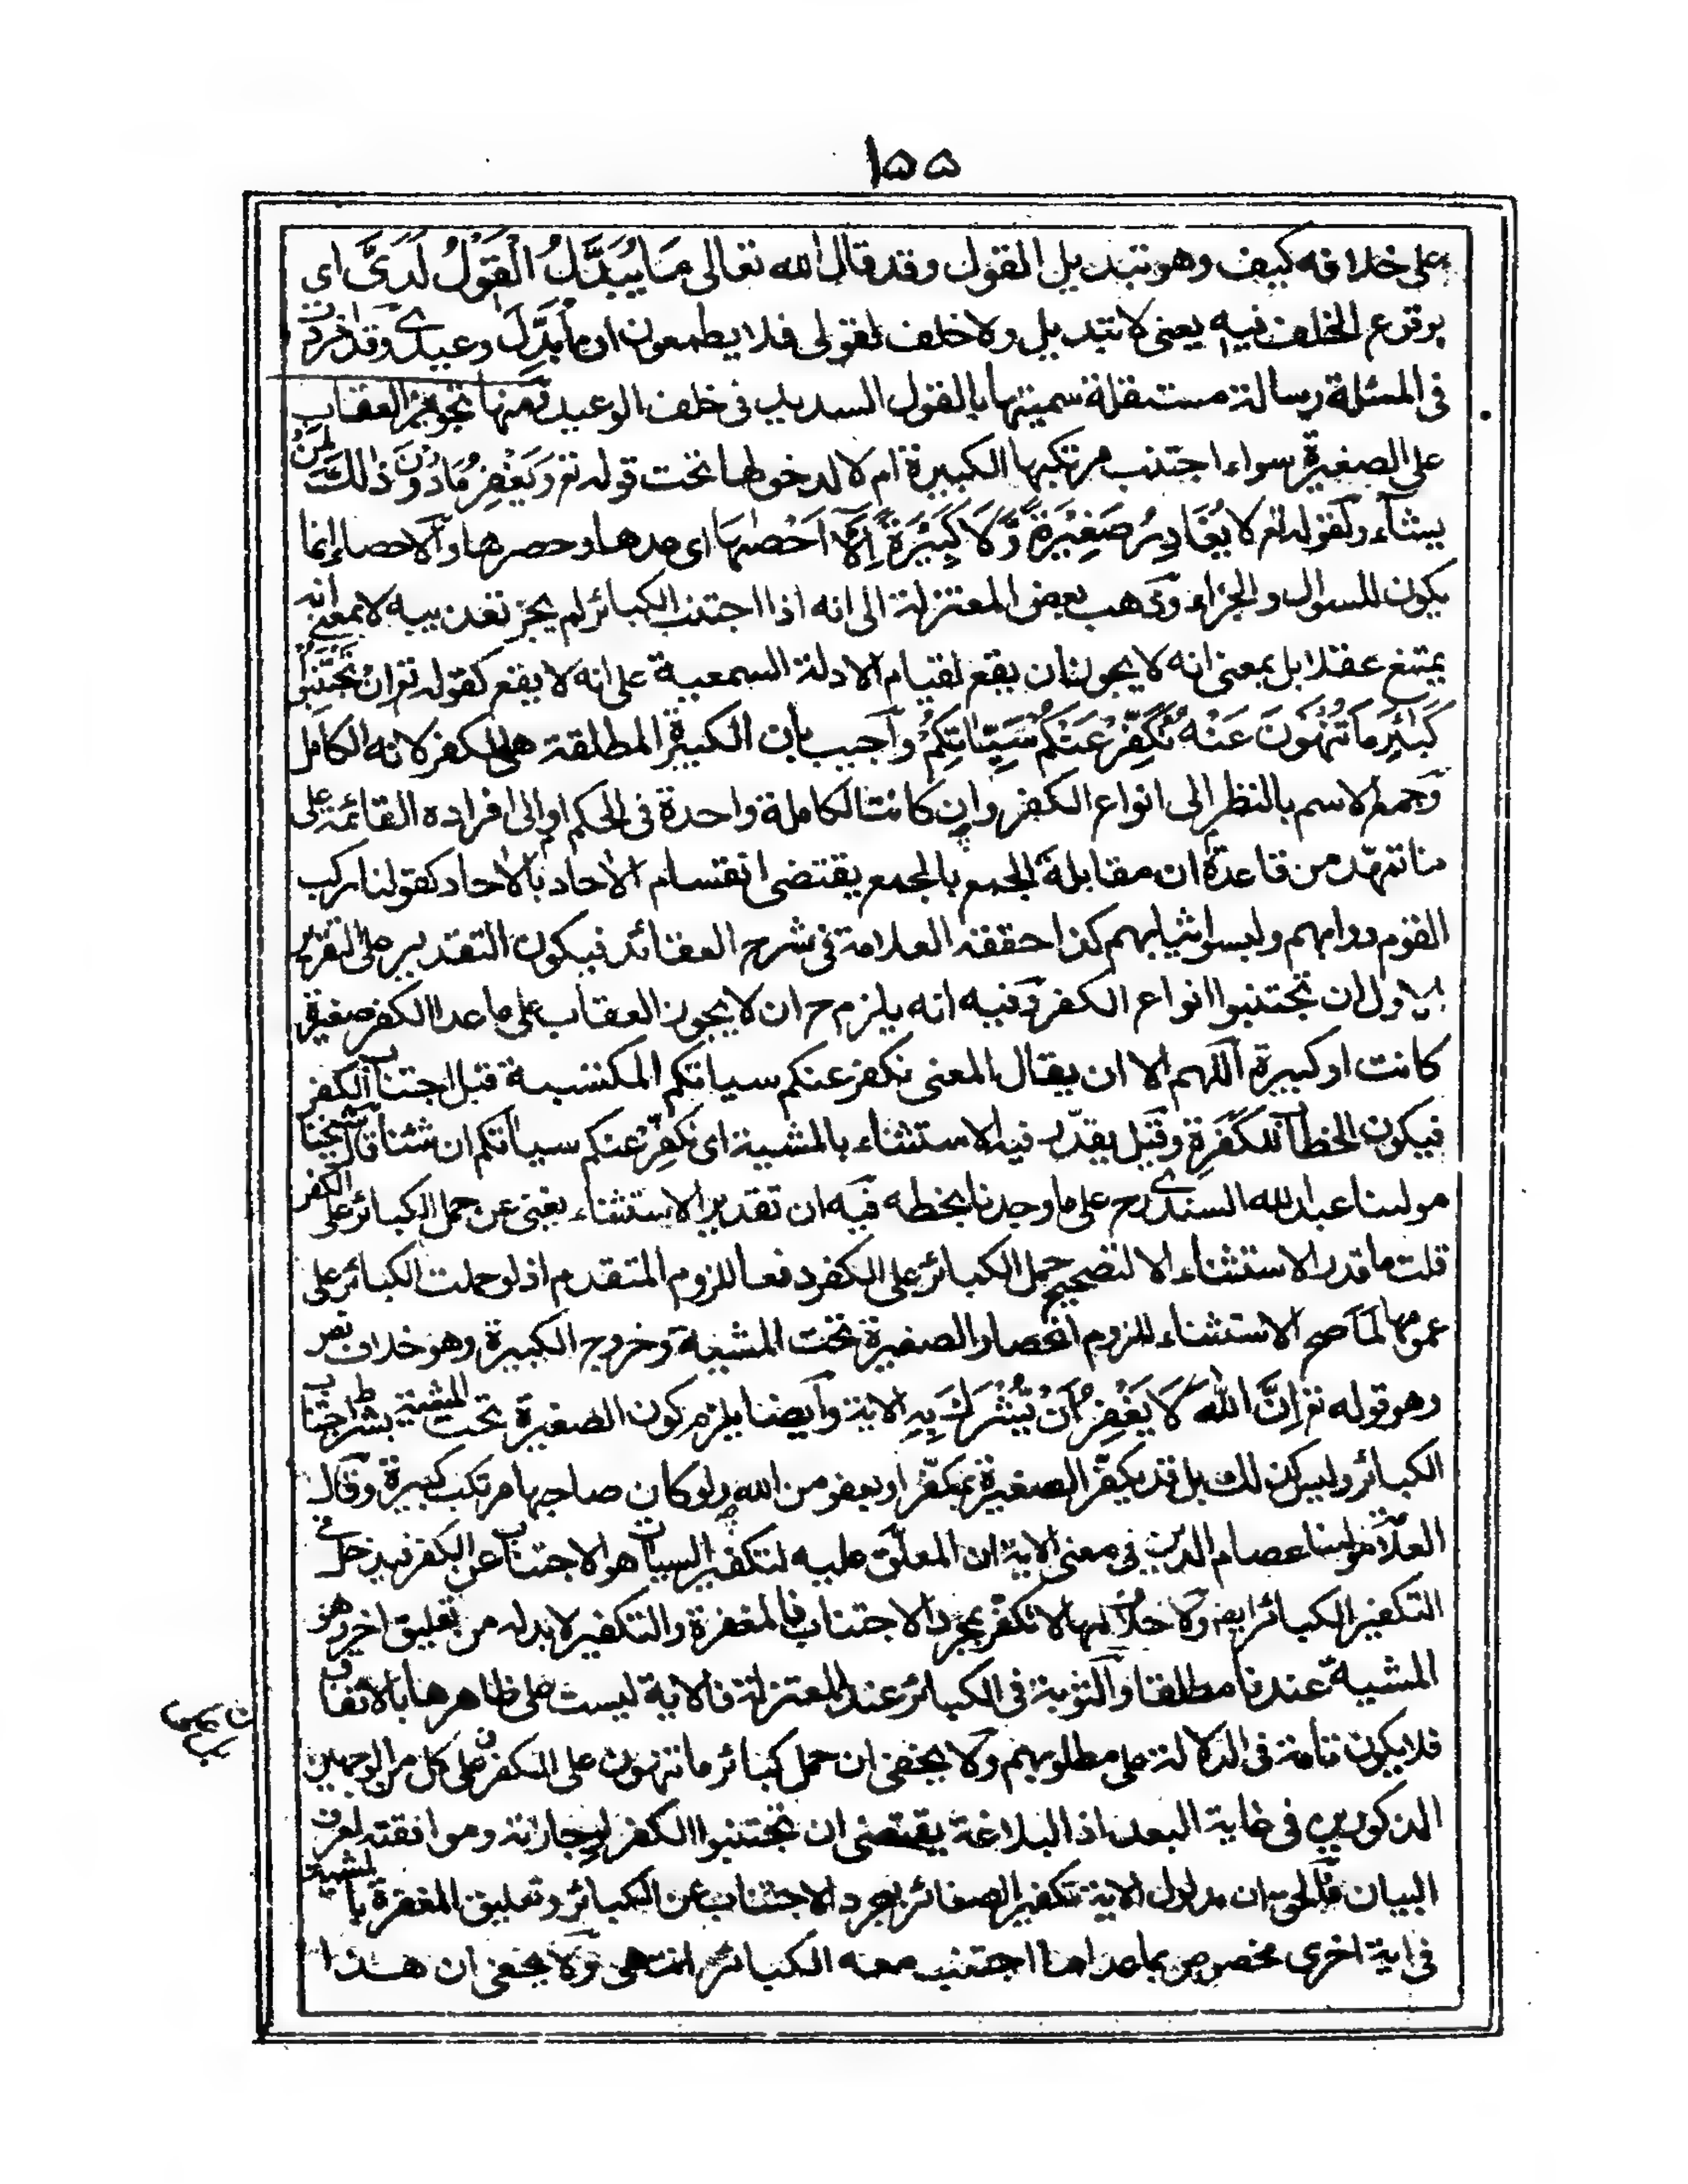 ١٥٥
على خلافه كيف وهو تبديل القول وقد قال الله تعالى مَا يُبَدَّلُ الْقَوْلُ لَدَيَّ اى
بوقوع الخلف فيه يعنى لا تبديل ولا خلف لقولى فلا يطمعون ان ما بُدِّلَ وعيدى وقد افردت
فى المسئلة رسالة مستقلة سميتها بالقول السديد فى خلف الوعيد ومنها تجويز العقاب
على الصغيرة سواء اجتنب مرتكبها الكبيرة ام لا لدخولها تحت قوله تع وَيَغْفِرُ مَا دُوْنَ ذٰلِكَ لِمَنْ
يشآء ولقوله تع لا يُغَادِرُ صَغِيْرَةً وَّلَا كَبِيْرَةً اِلَّا اَحْصٰهَا اى عدها وحصرها والاحصاء انما
يكون للسوال والجزاء وذهب بعض المعتزلة الى انه اذا اجتنب الكبائر لم يجز تعذيبه لا بمعنى انه
يمتنع عقلا بل بمعنى انه لا يجوز ان يقع لقيام الادلة السمعية على انه لا يقع كقوله تع ان تَجْتَنِبُوا
كَبٰئِرَ مَا تُنْهَوْنَ عَنْهُ نُكَفِّرْ عَنْكُمْ سَيِّئَاتِكُمْ واجيب بان الكبيرة المطلقة هى الكفر لانه الكامل
وجمع الاسم بالنظر الى انواع الكفر وان كانت الكاملة واحدة فى الحكم او الى افراده القائمة على
ما تمهّد من قاعدة ان مقابلة الجمع بالجمع يقتضى انقسام الاحاد بالاحاد كقولنا ركب
القوم دوابهم ولبسوا ثيابهم كذا حققه العلامة فى شرح العقائد فيكون التقدير على التقرير
الاول ان تجتنبوا انواع الكفر وفيه انه يلزم ح ان لا يجوز العقاب على ما عدا الكفر صغيرة
كانت او كبيرة اللهم الا ان يقال المعنى نكفر عنكم سياتكم المكتسبة قبل اجتناب الكفر
فيكون الخطاب للكفرة وقيل يقدّر فيه الاستثناء بالمشية اى نكفِّر عنكم سياتكم ان شئنا قال شيخنا
مولىنا عبد الله السندى رح على ما وجدنا بخطه فيه ان تقدير الاستثناء يغنى عن حمل الكبائر على الكفر
قلت ما قدر الاستثناء الا لتصحيح حمل الكبائر على الكفر دفعا للزوم المتقدم اذ لو حملت الكبائر على
عمومها لما صح الاستثناء للزوم انحصار الصغيرة تحت المشية وخروج الكبيرة وهو خلاف نص
وهو قوله تع اِنَّ اللهَ لَا يَغْفِرُ اَنْ يُّشْرَكَ بِهٖ الاية وايضا يلزم كون الصغيرة تحت المشية بشرط اجتناب
الكبائر وليس كذلك بل قد يكفّر الصغيرة بمكفّر او بعفو من الله ولو كان صاحبها مرتكب كبيرة وقال
العلامة مولىنا عصام الدين فى معنى الاية ان المعلّق عليه لتكفير السيات هو الاجتناب عن الكفر فيدخل فى
التكفير الكبائر ايض ولا خلاف انها لا تكفّر بمجرد الاجتناب فالمغفرة والتكفير لا بد له من تعليق اخر وهو
المشية عندنا مطلقا والتوبة فى الكبائر عند المعتزلة فالاية ليست على ظاهرها بالاتفاق
فلا يكون تامة فى الدلالة على مطلوبهم ولا يخفى ان حمل كبائر ما تنهون على الكفر على كل من الوجهين
المذكورين فى غاية البعد اذ البلاغة يقتضى ان تجتنبوا الكفر لوجازته وموافقته لعرف
البيان فالحق ان مدلول الاية تكفير الصغائر بمجرد الاجتناب عن الكبائر وتعليق المغفرة بالمشية
فى اية اخرى مخصوص بما عدا ما اجتنب معه الكبائر انتهى ولا يخفى ان هذا